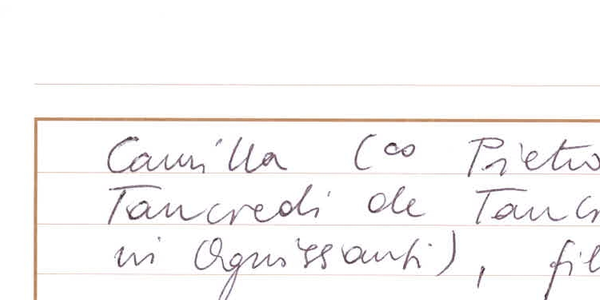 Camilla (∞ Pietro
Tancredi de Tancr
in Ognissanti), fil